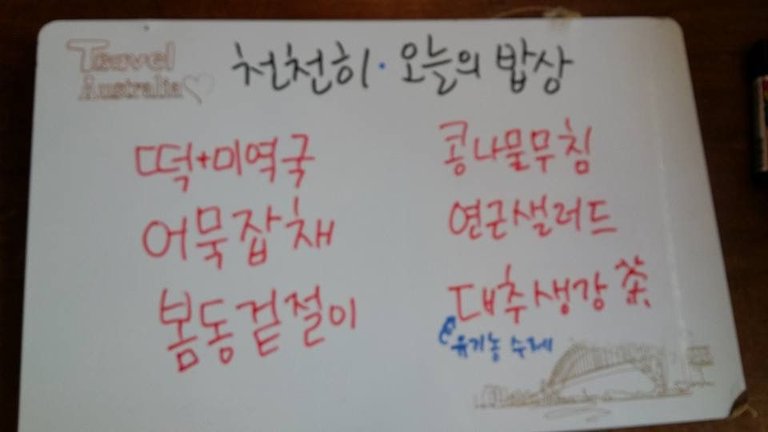 Travel
Australia♡
천천히·오늘의 밥상
떡+미역국
어묵잡채
봄동겉절이
콩나물무침
연근샐러드
대추생강茶
유기농 수제